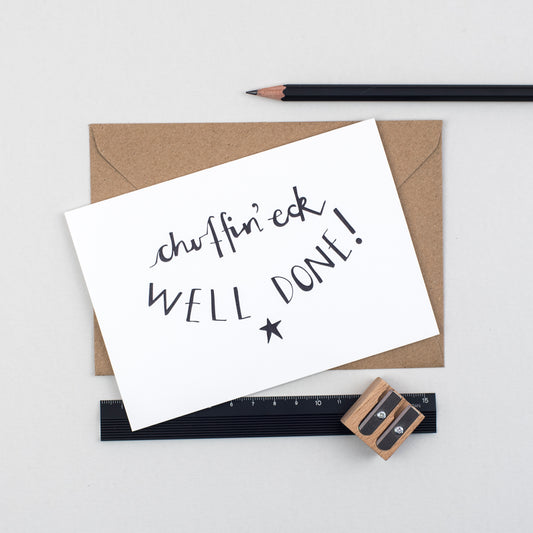 chuffin' eck
WELL DONE!
6 7 8 9 10 11 15